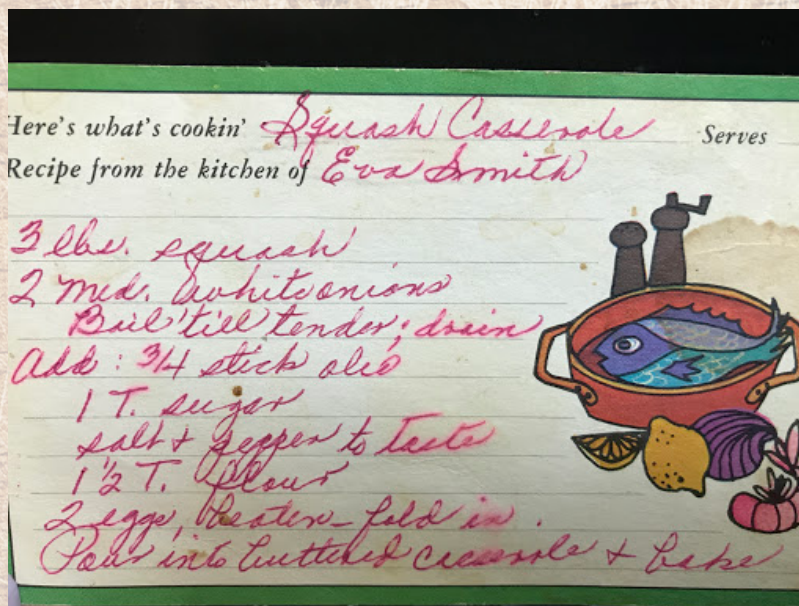 Here's what's cookin' Squash Casserole Serves
Recipe from the kitchen of Eva Smith
3 lbs. squash
2 med. white onions
Boil 'till tender; drain
Add: 3/4 stick oleo
1 T. sugar
salt & pepper to taste
1 1/2 T. flour
2 eggs, beaten - fold in.
Pour into buttered casserole & bake